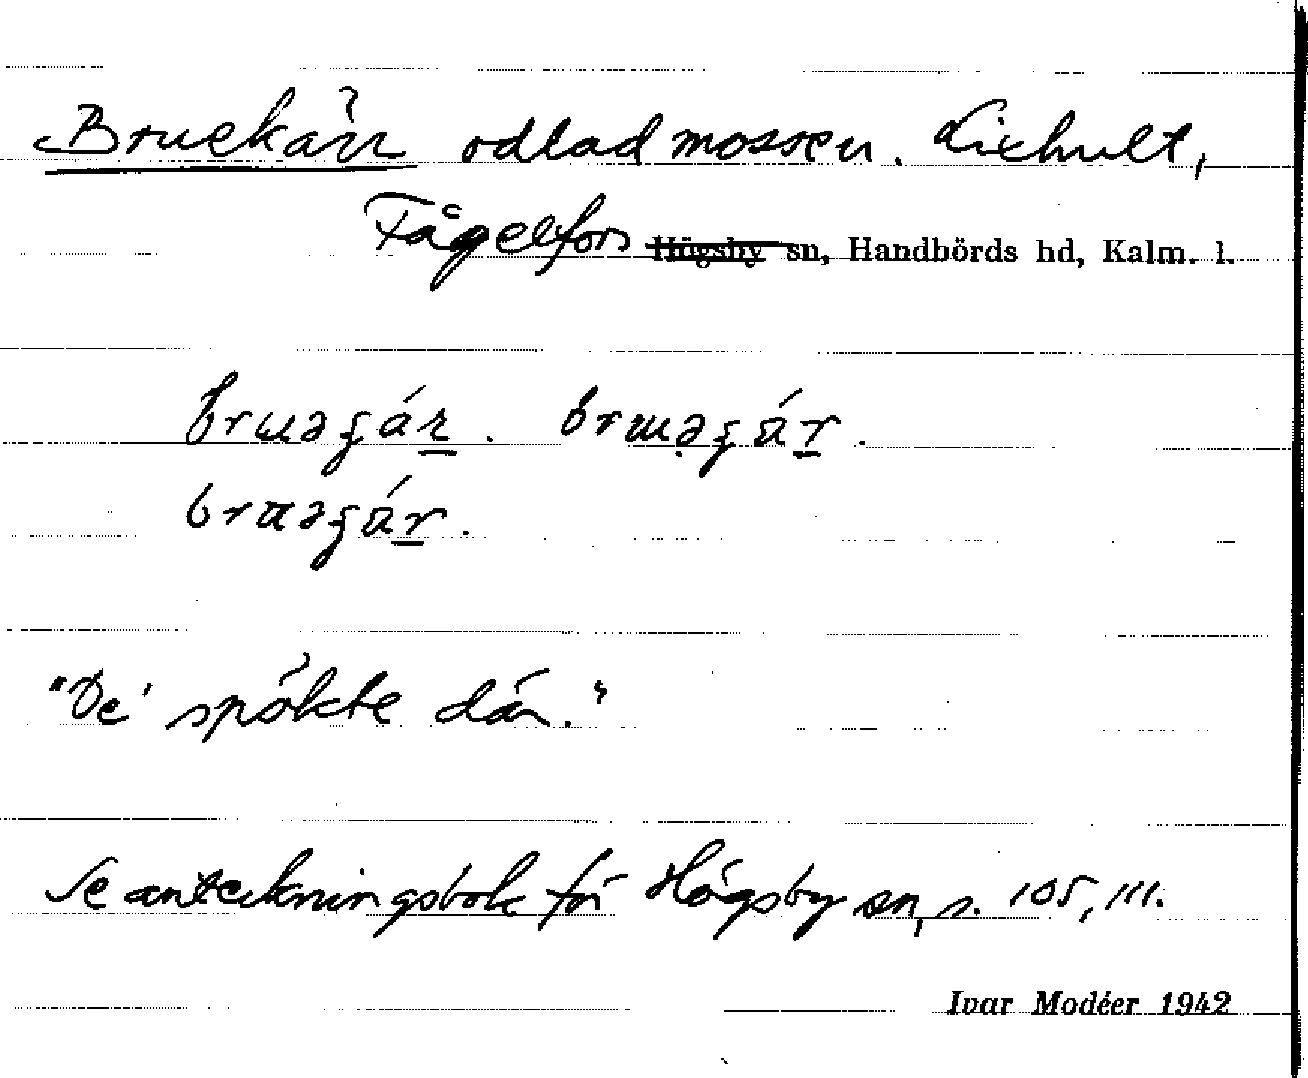 Bruekärr odlad mossen. Lixhult,
Fågelfors Högsby sn, Handbörds hd, Kalm. l.
"De' spökte där."
Se anteckningsbok för Högsby sn, s. 105, 111.
Ivar Modéer 1942